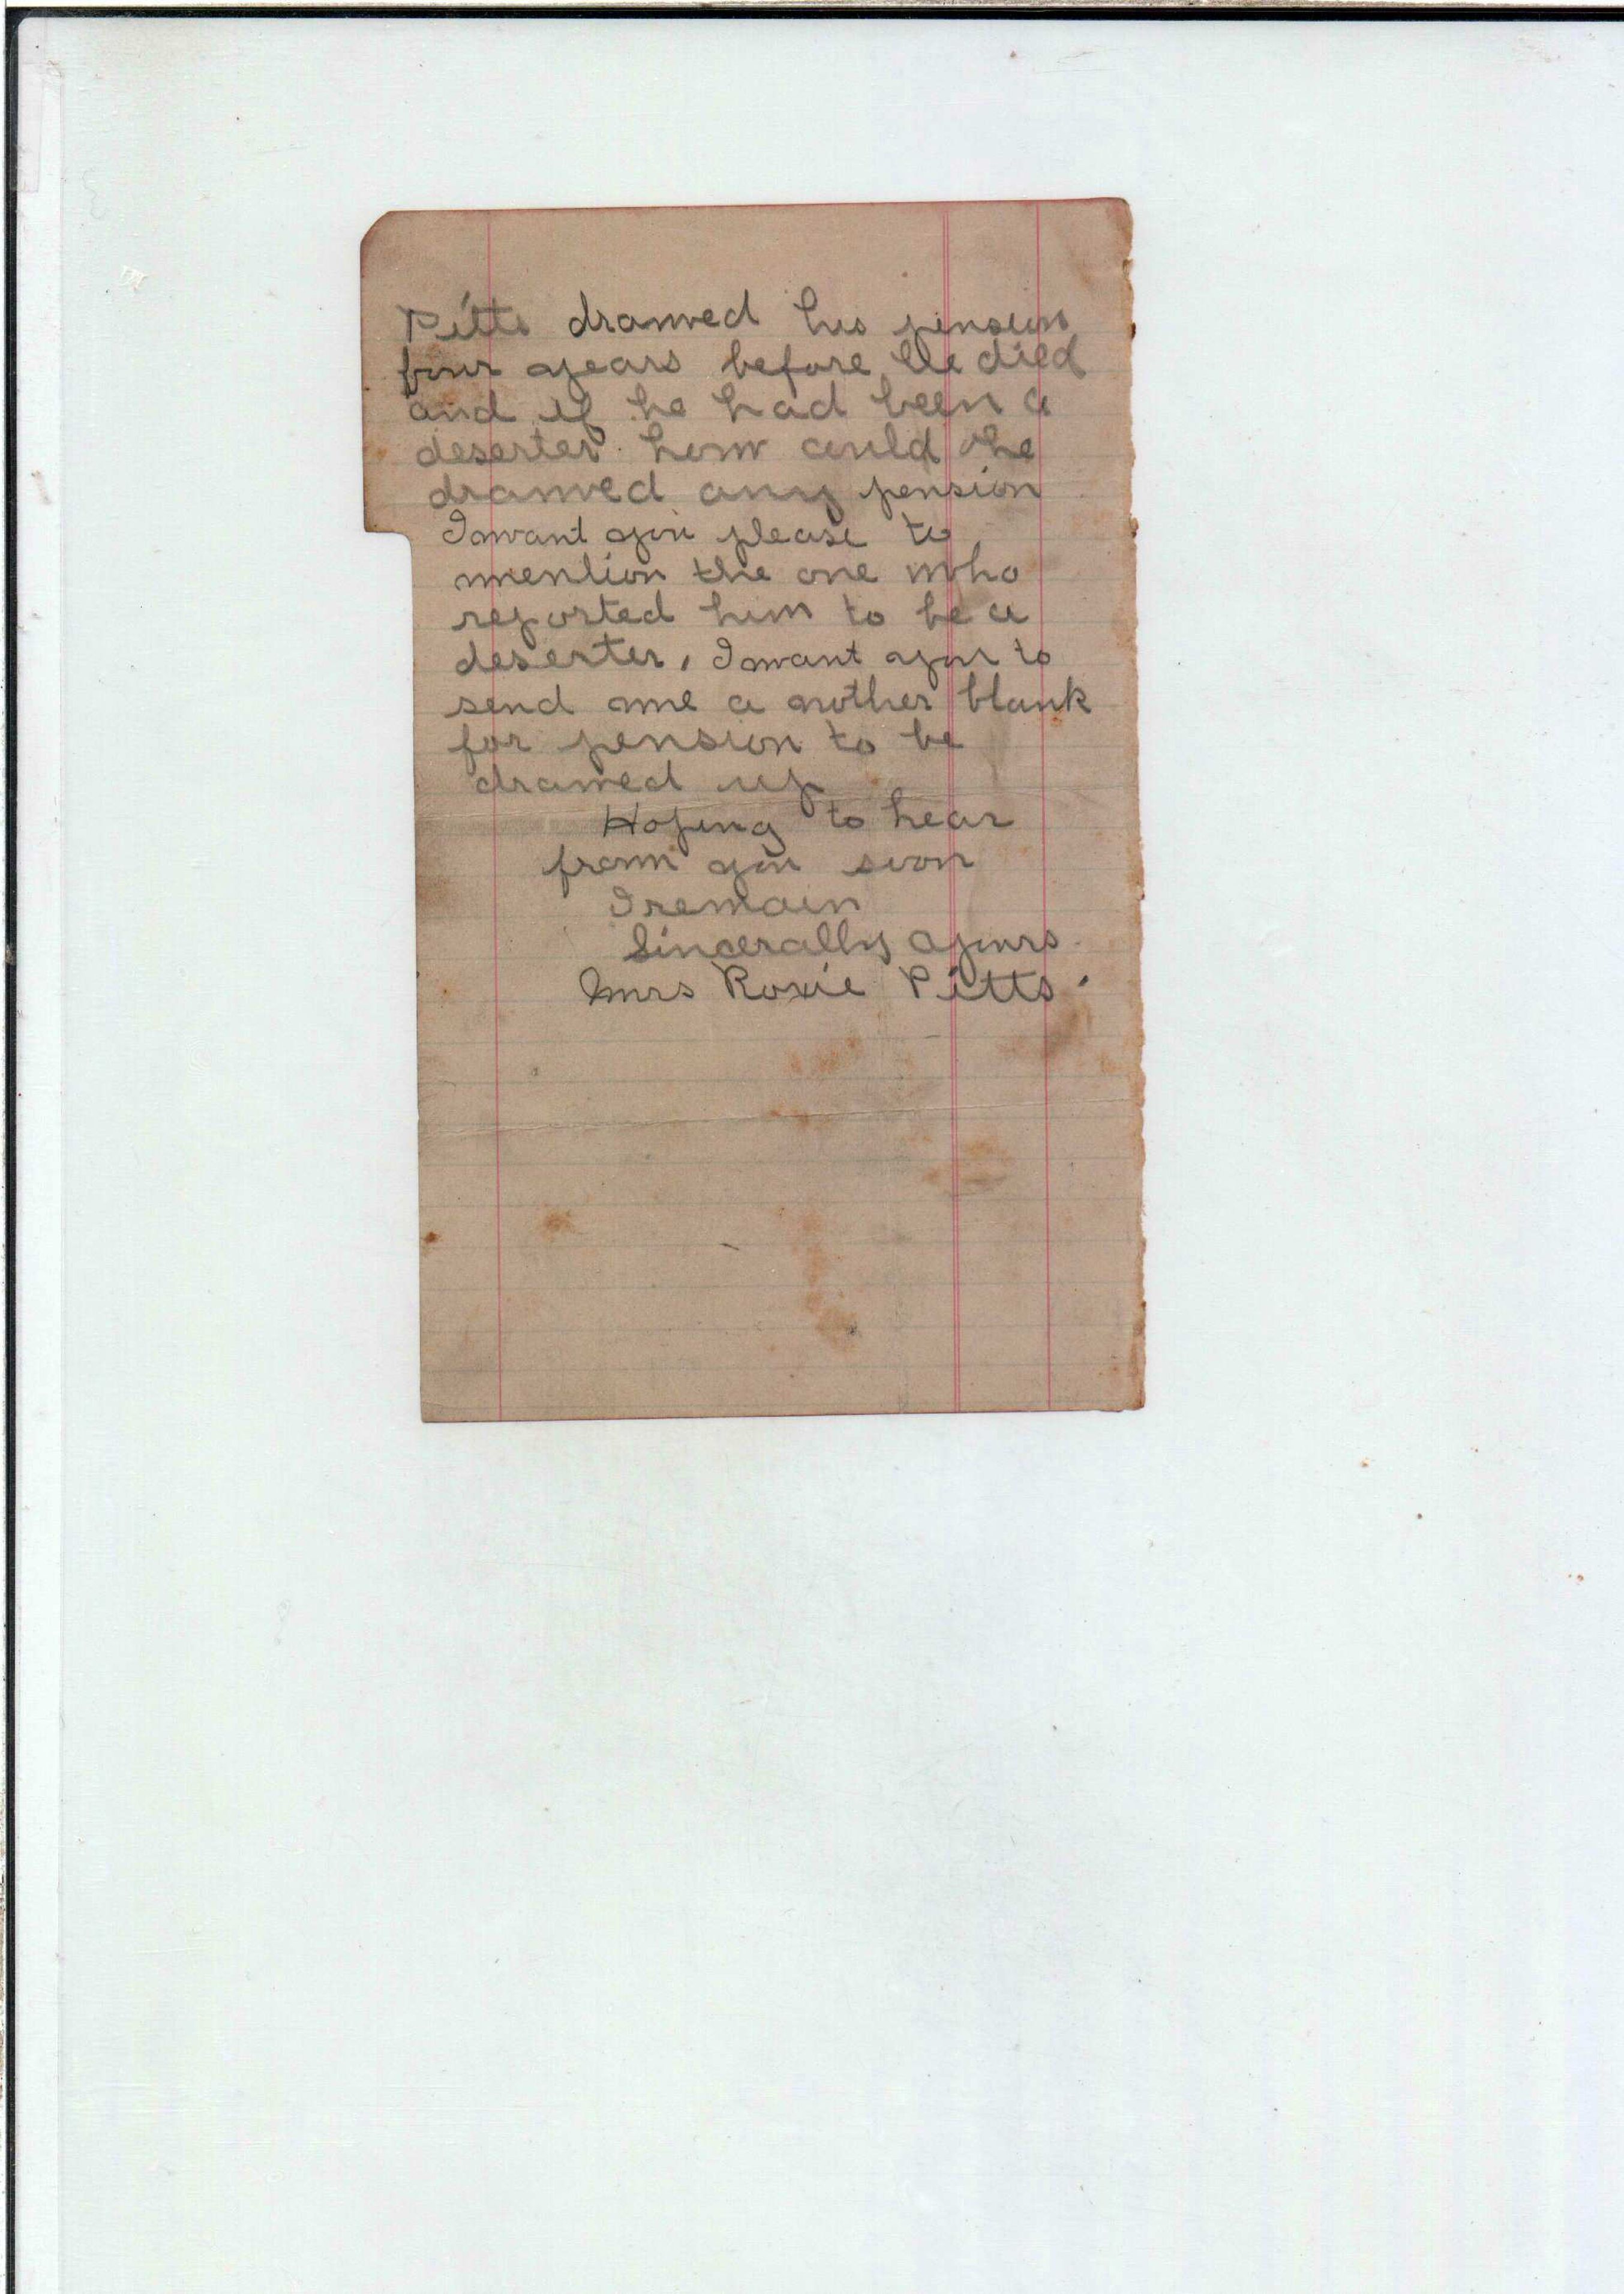 Pitts drawed his pension
four years before he died
and if he had been a
deserter how could he
drawed any pension
I want you please to
mention the one who
reported him to be a
deserter, I want you to
send me a nother blank
for pension to be
drawed up
Hoping to hear
from you soon
I remain
Sincerally yours.
Mrs Roxie Pitts.